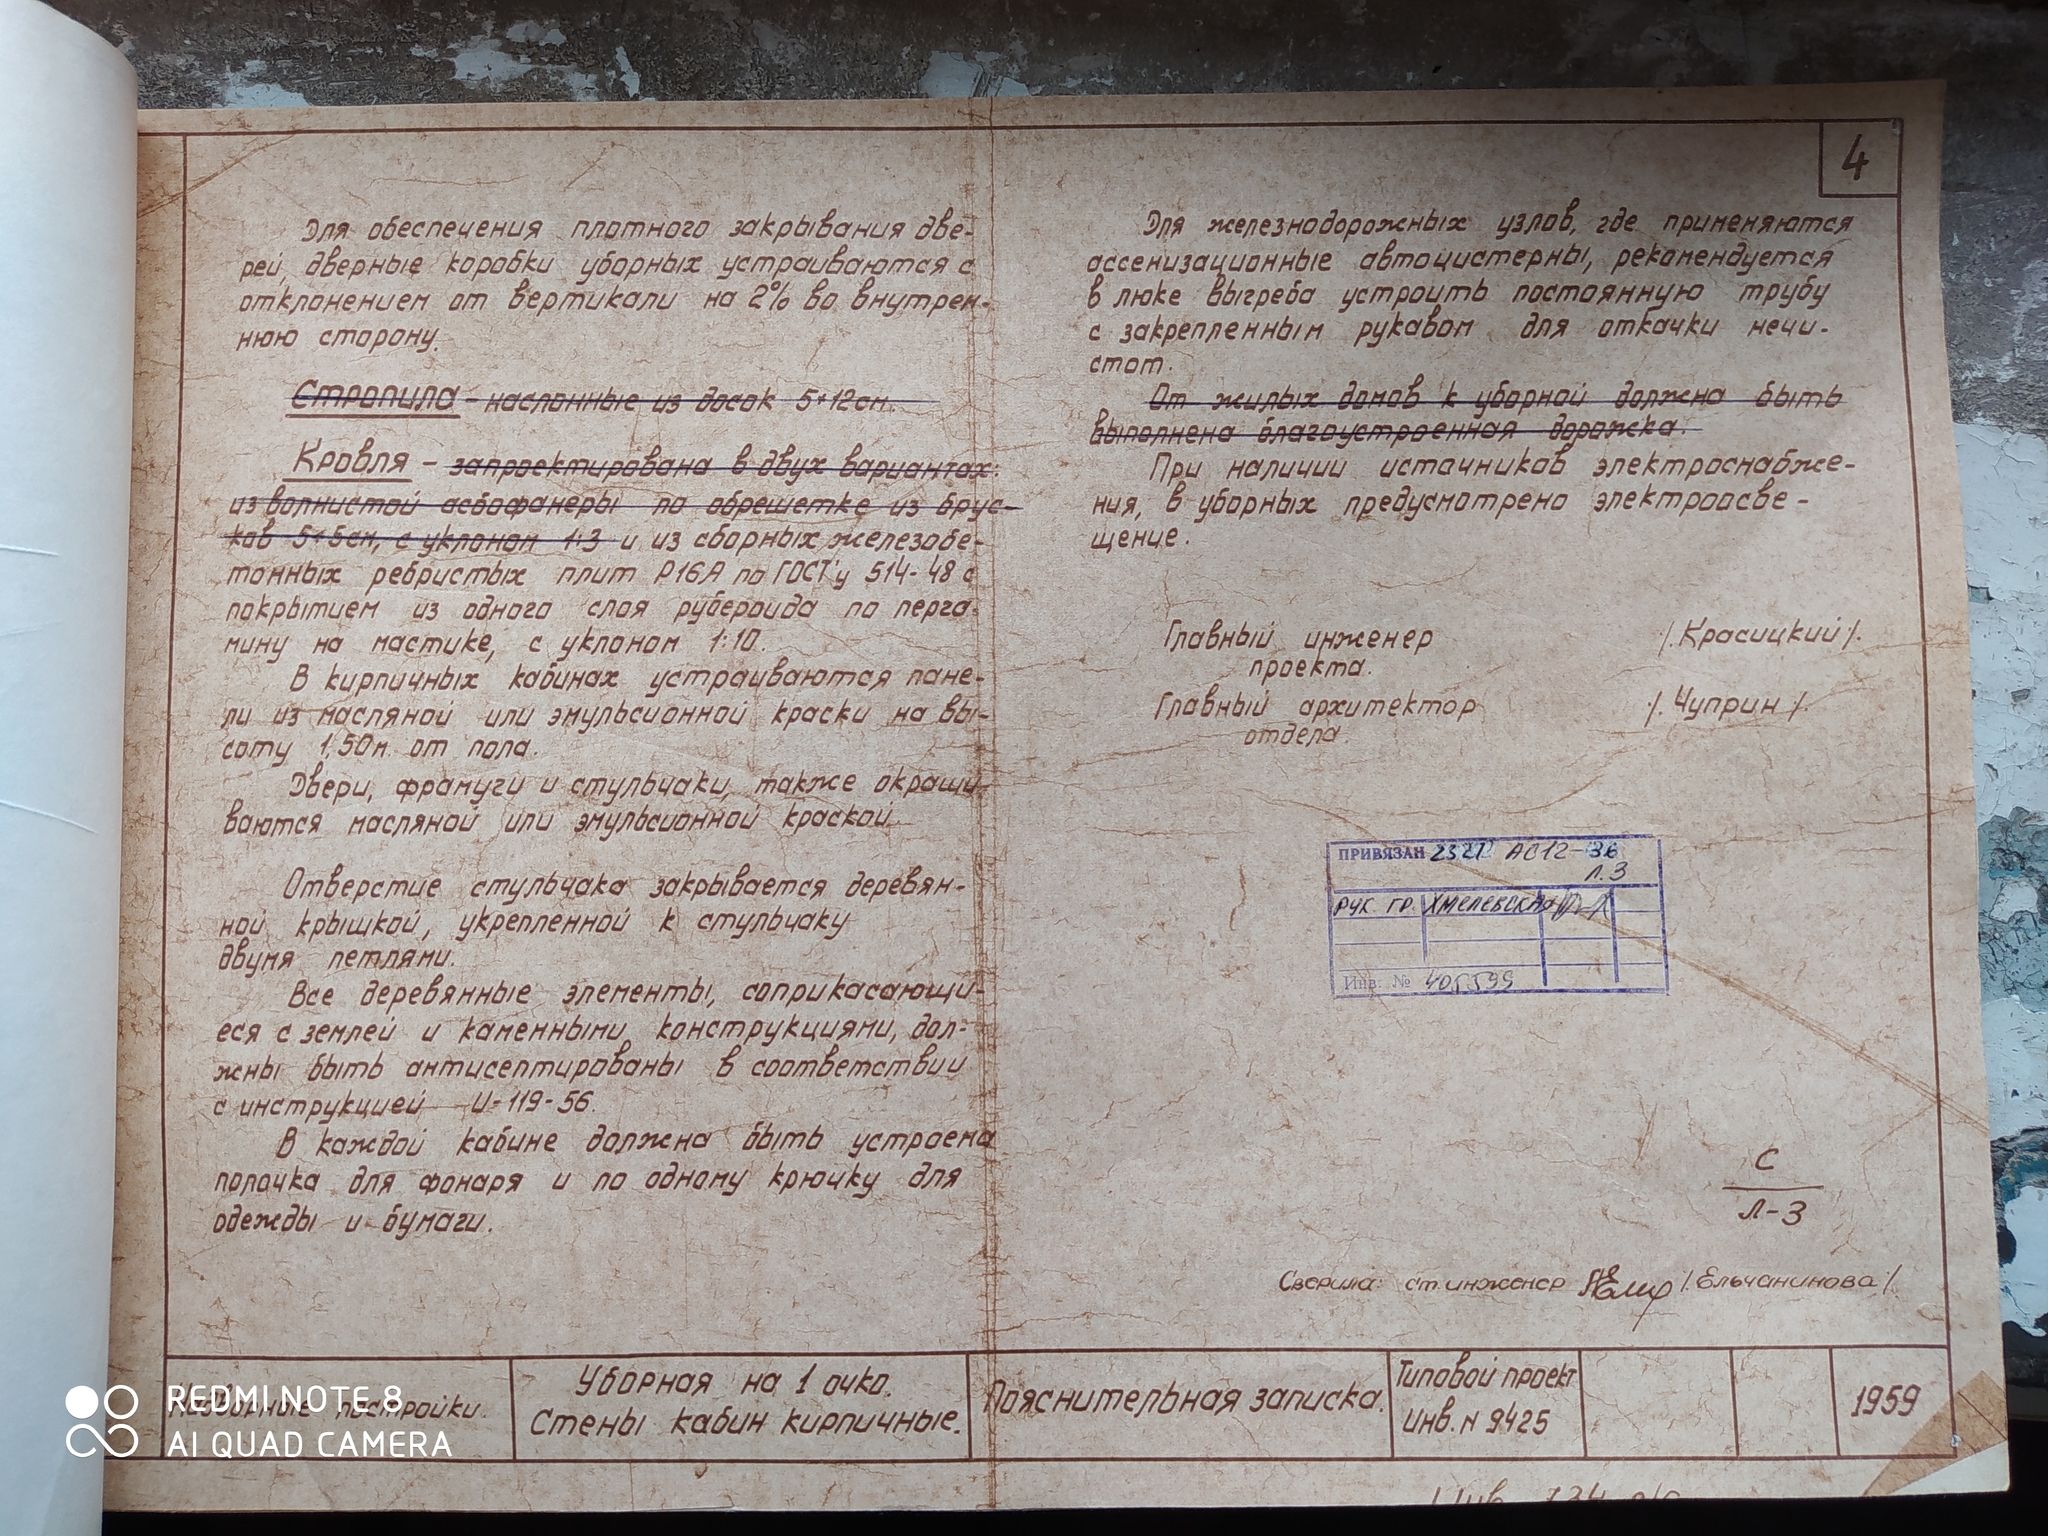 4
Для обеспечения плотного закрывания две-
рей, дверные коробки уборных устраиваются с
отклонением от вертикали на 2% во внутрен-
нюю сторону.
Стропила - наслонные из досок 5*12см.
Кровля - запроектирована в двух вариантах:
из волнистой асбофанеры по обрешетке из брус-
ков 5*5см, с уклоном 1:3 и из сборных железобе-
тонных ребристых плит Р16А по ГОСТ'у 514-48 с
покрытием из одного слоя рубероида по перга-
мину на мастике, с уклоном 1:10.
В кирпичных кабинах устраиваются пане-
ли из масляной или эмульсионной краски на вы-
соту 1,50м. от пола.
Двери, фрамуги и стульчаки, также окраши-
ваются масляной или эмульсионной краской.
Отверстие стульчака закрывается деревян-
ной крышкой, укрепленной к стульчаку
двумя петлями.
Все деревянные элементы, соприкасающи-
еся с землей и каменными конструкциями, дол-
жны быть антисептированы в соответствии
с инструкцией И-119-56.
В каждой кабине должна быть устроена
полочка для фонаря и по одному крючку для
одежды и бумаги.
Для железнодорожных узлов, где применяются
ассенизационные автоцистерны, рекомендуется
в люке выгреба устроить постоянную трубу
с закрепленным рукавом для откачки нечи-
стот.
От жилых домов к уборной должна быть
выполнена благоустроенная дорожка.
При наличии источников электроснабже-
ния, в уборных предусмотрено электроосве-
щение.
Главный инженер /.Красицкий/.
проекта.
Главный архитектор /.Чуприн/.
отдела.
ПРИВЯЗАН АС12-36
л.3
РУК. ГР. ХМЕЛЕВСКАЯ
Инв. № 405599
С
Л-3
Сверила: ст.инженер /.Ельчанинова/.
постройки.
Уборная на 1 очко.
Стены кабин кирпичные.
Пояснительная записка.
Типовой проект
Инв. N 9425
1959
REDMI NOTE 8
AI QUAD CAMERA